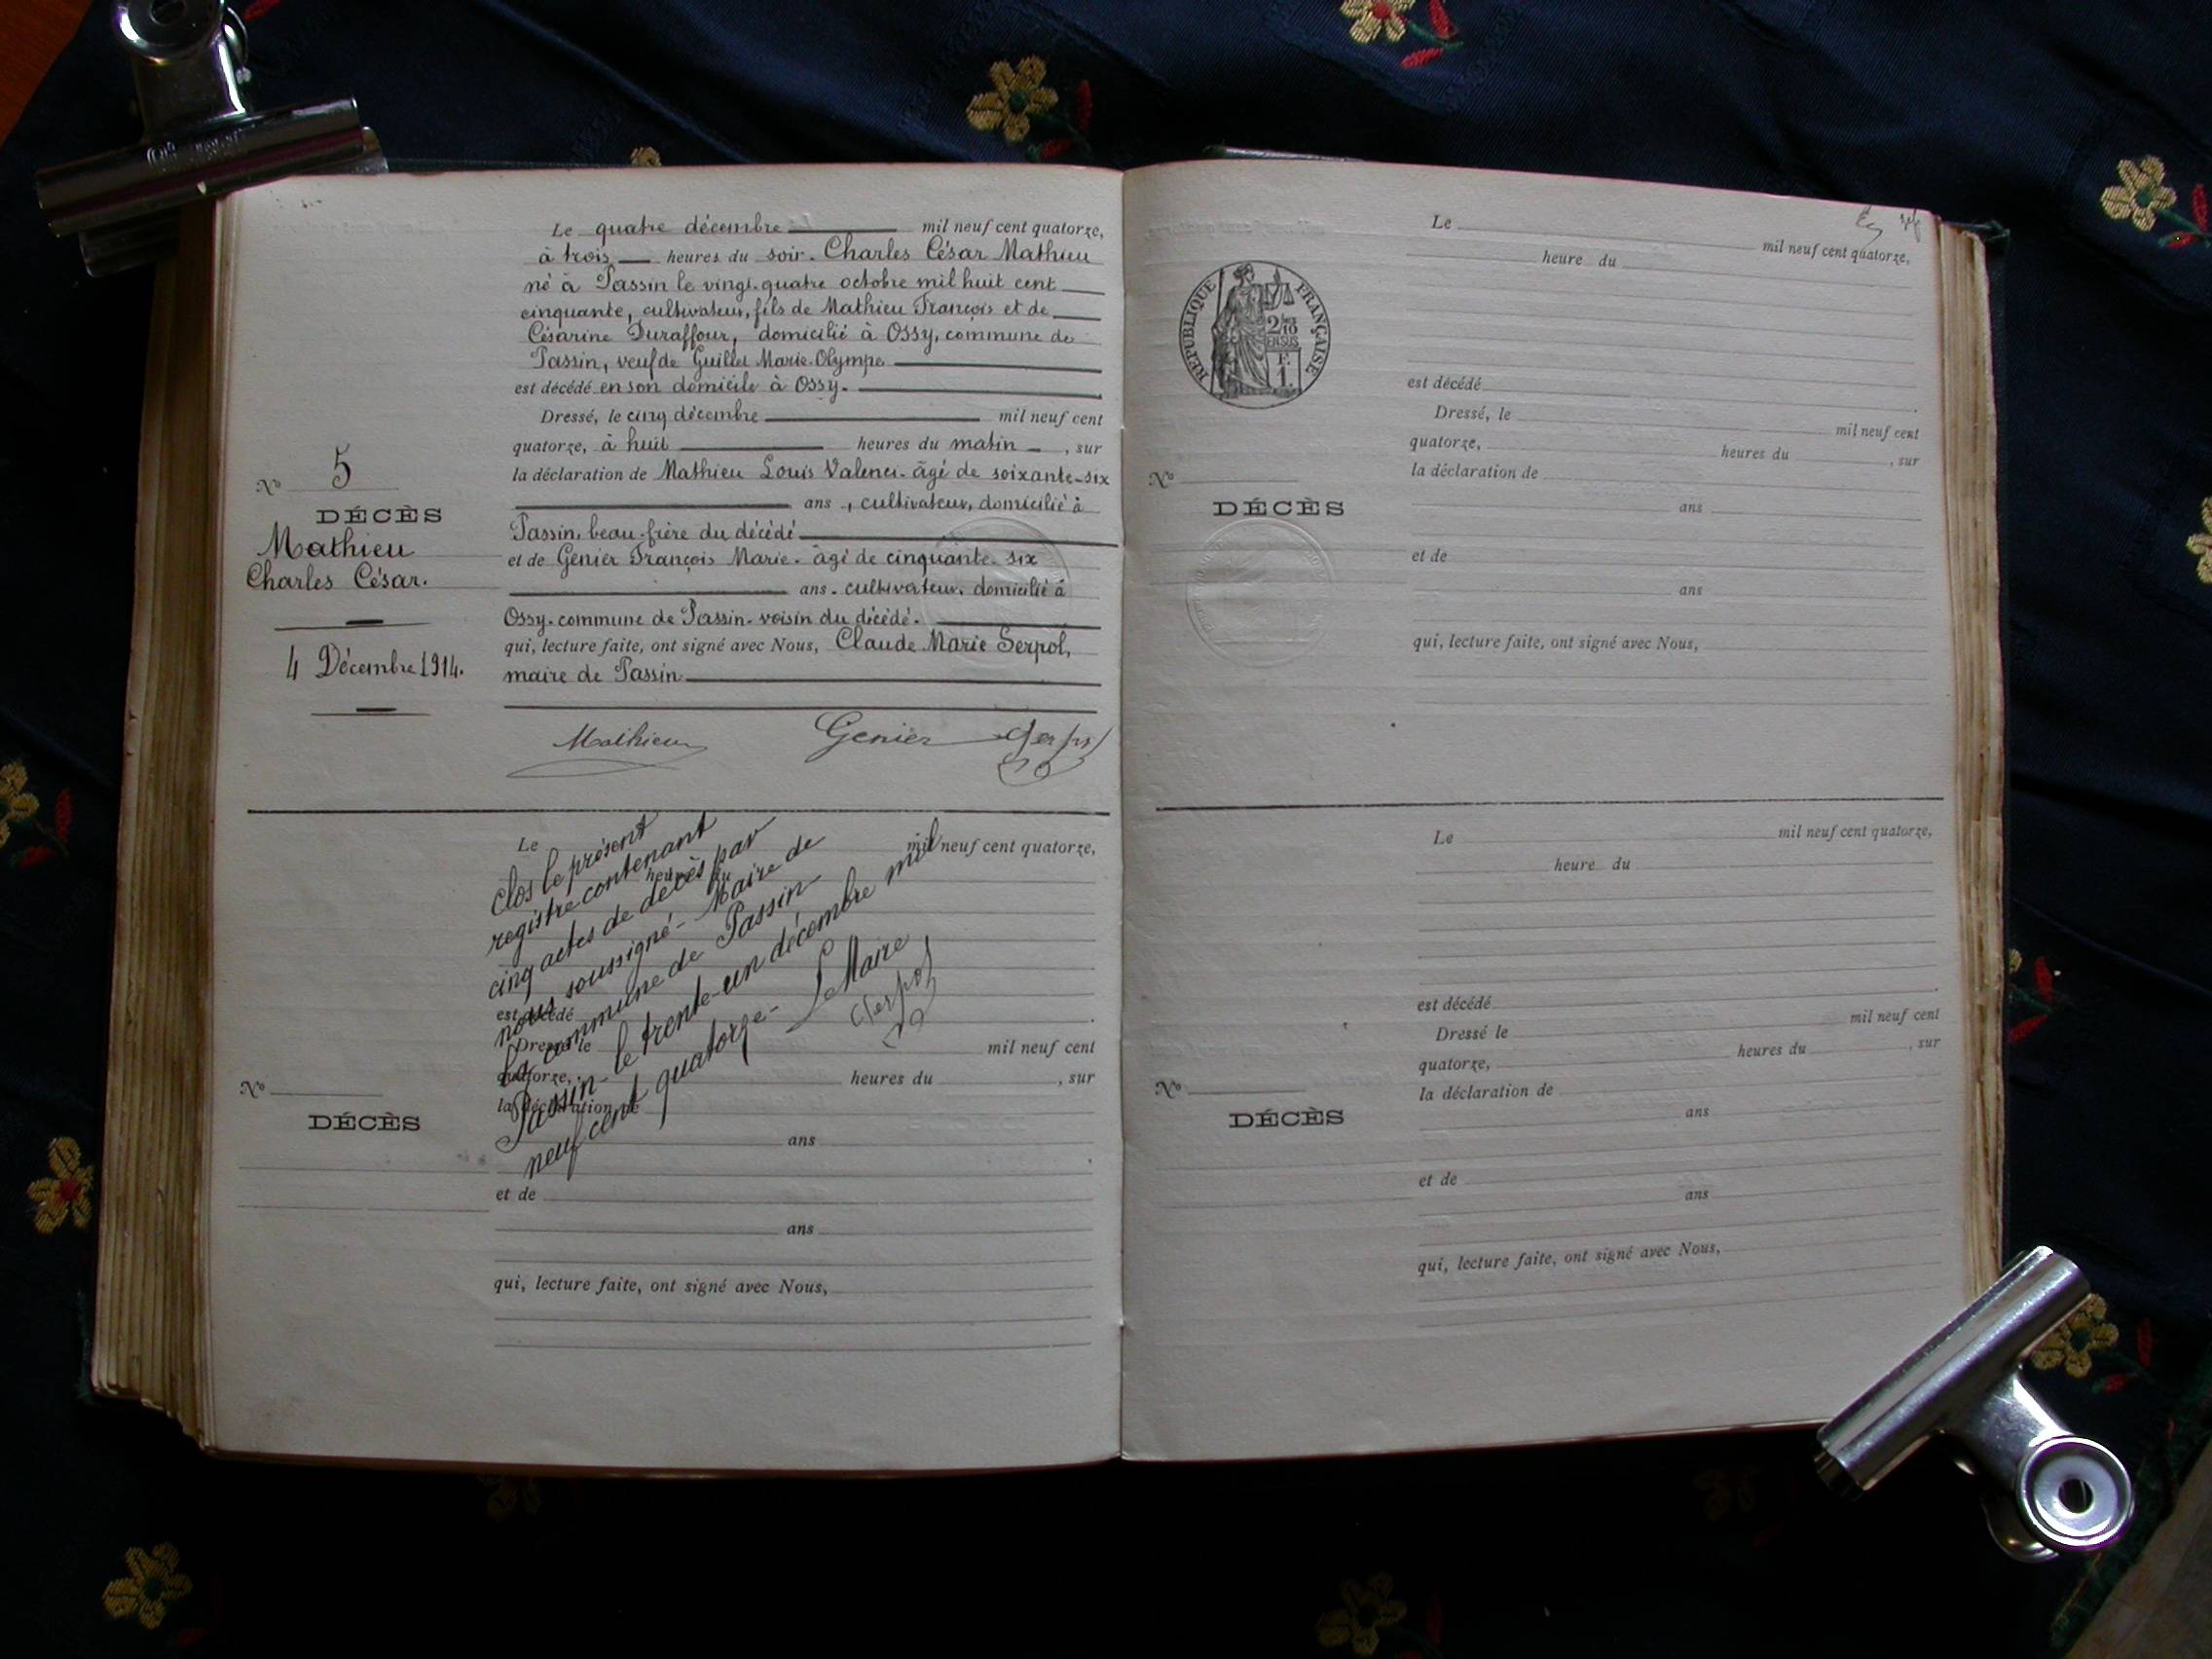 Le quatre décembre mil neuf cent quatorze,
à trois heures du soir. Charles César Mathieu
né à Passin le vingt-quatre octobre mil huit cent
cinquante, cultivateur, fils de Mathieu François et de
Césarine Duraffour, domicilié à Ossy, commune de
Passin, veuf de Guillet Marie-Olympe
est décédé en son domicile à Ossy.
Dressé, le cinq décembre mil neuf cent
quatorze, à huit heures du matin, sur
la déclaration de Mathieu Louis âgé de soixante-six
ans, cultivateur, domicilié à
Passin, beau-frère du décédé
et de Genier François Marie. âgé de cinquante-six
ans. cultivateur, domicilié à
Ossy. commune de Passin. voisin du décédé.
qui, lecture faite, ont signé avec Nous, Claude Marie Serpol,
maire de Passin
Mathieu Genier Serpol
N° 5
DÉCÈS
Mathieu
Charles César.
4 Décembre 1914.
Le mil neuf cent quatorze,
heure du
est décédé
Dressé le mil neuf cent
quatorze, heures du , sur
la déclaration de
ans
et de
ans
qui, lecture faite, ont signé avec Nous,
N°
DÉCÈS
Clos le présent
registre contenant
cinq actes de décès par
nous soussigné - Maire de
la commune de Passin
Passin - le trente-un décembre mil
neuf cent quatorze -
Le Maire
Serpol
RÉPUBLIQUE FRANÇAISE
2/10
EN SUS
F.
1.
Le mil neuf cent quatorze,
heure du
est décédé
Dressé, le mil neuf cent
quatorze, heures du , sur
la déclaration de
ans
et de
ans
qui, lecture faite, ont signé avec Nous,
N°
DÉCÈS
Le mil neuf cent quatorze,
heure du
est décédé
Dressé le mil neuf cent
quatorze, heures du , sur
la déclaration de
ans
et de
ans
qui, lecture faite, ont signé avec Nous,
N°
DÉCÈS